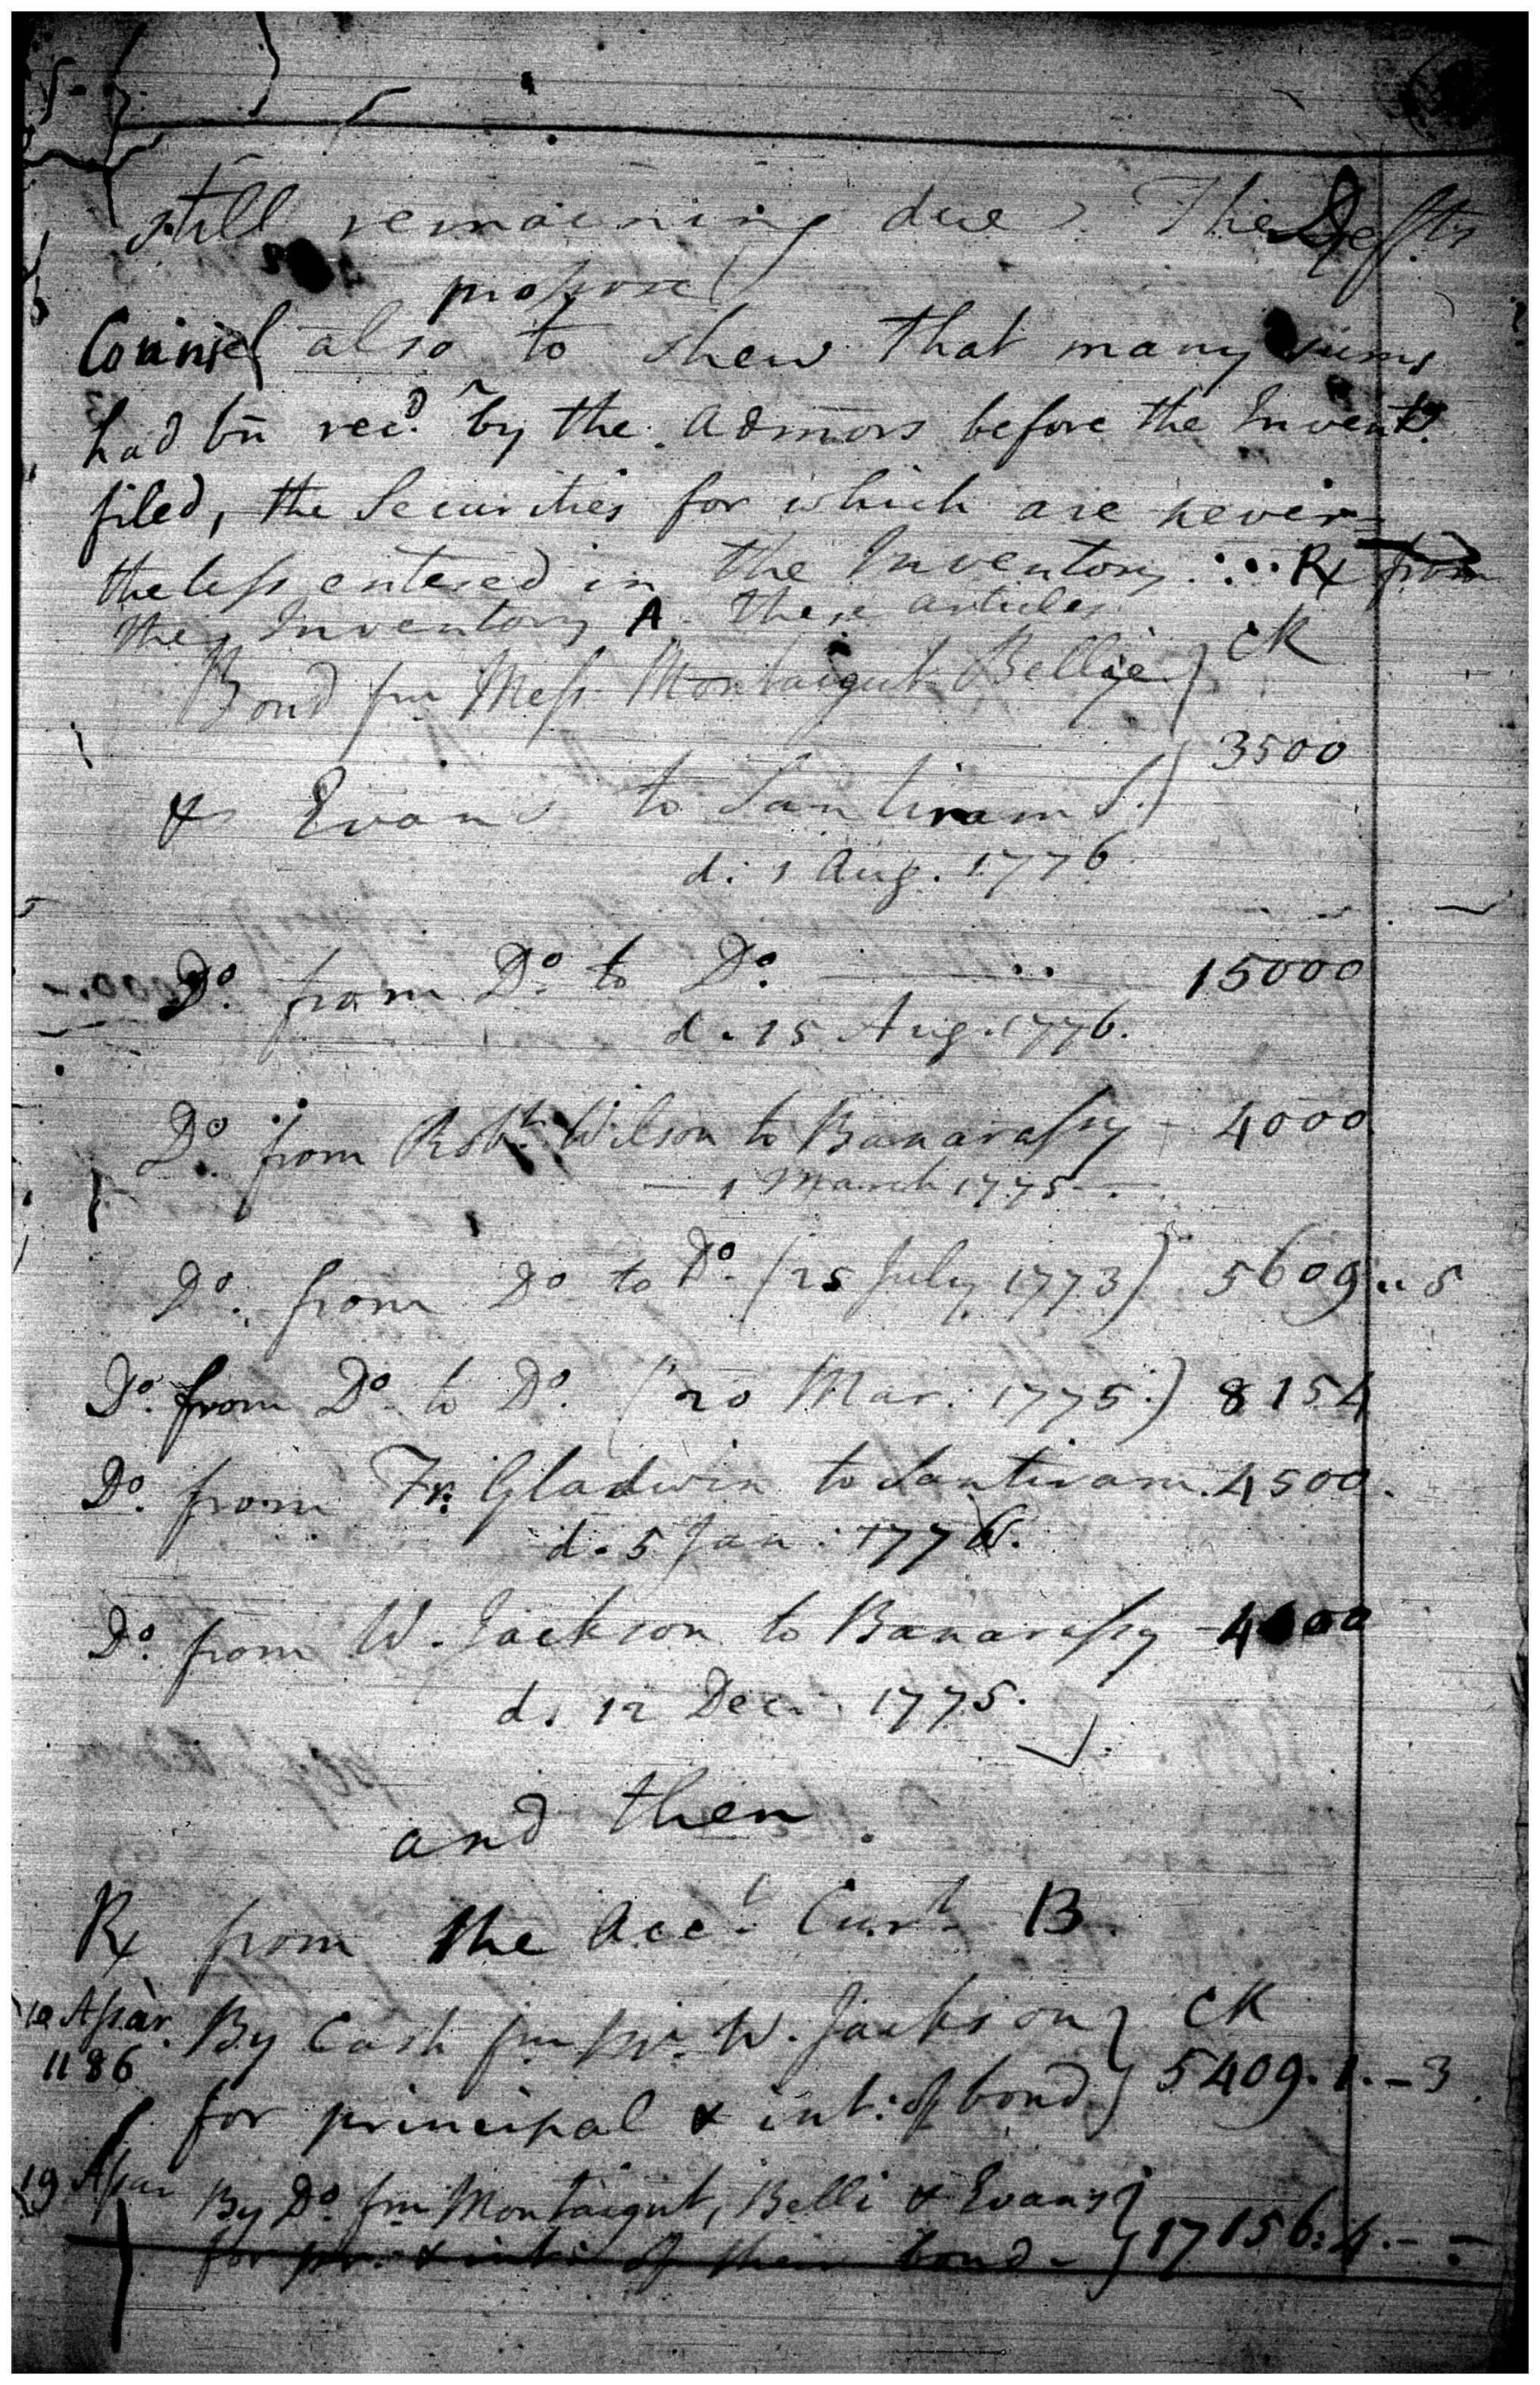 still remaining due). The Defts
propose
Counsel also to shew that many sums
had bn recd. by the admors before the Inventy.
filed, the Securities for which are never=
theless entered in the Inventory ∴ Rx from
the Inventory A. these articles
Bond fm Mess. Montaigut Bellie } CR
& Evans to Santiram S. } 3500
d. 1 Aug. 1776
Do. from Do. to Do. 15000
d. 15 Aug. 1776.
Do. from Robt. Wilson to Banarassy - 4000
— 1 March 1775 —
Do. from Do. to Do. (25 July 1773) 5609 .. 5
Do. from Do. to Do. (20 Mar. 1775.) 8154
Do. from Fr. Gladwin to Santiram. 4500.
d. 5 Jan. 1776.
Do. from W. Jackson to Banarassy - 4000
d. 12 Dec. 1775.
and then.
Rx from the Acct. Curt. B.
10 Assar. By Cash fm Mr. W. Jackson } CR
1186 for principal & int: of bond } 5409. 1. - 3.
19 Assar By Do. fm Montaigut, Belli & Evans }
for pr. & int. of their bond - } 17156: 4. - -